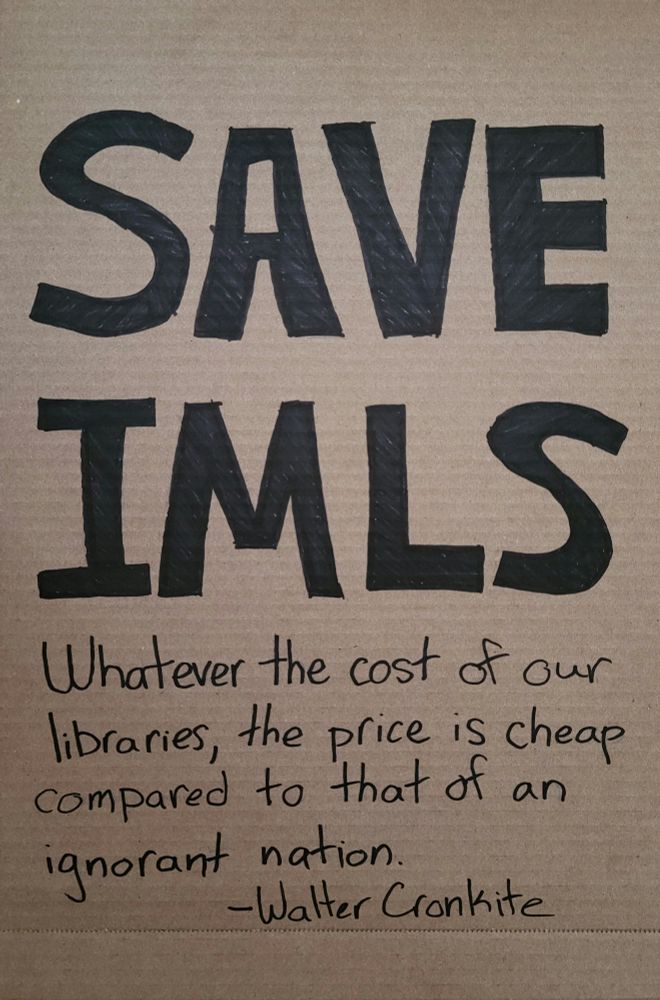 SAVE
IMLS
Whatever the cost of our
libraries, the price is cheap
compared to that of an
ignorant nation.
-Walter Cronkite